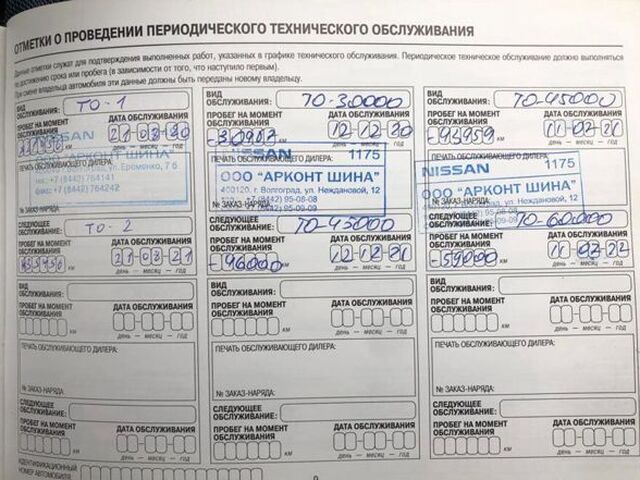 ОТМЕТКИ О ПРОВЕДЕНИИ ПЕРИОДИЧЕСКОГО ТЕХНИЧЕСКОГО ОБСЛУЖИВАНИЯ
Данные отметки служат для подтверждения выполненных работ, указанных в графике технического обслуживания. Периодическое техническое обслуживание должно выполняться
по достижению срока или пробега (в зависимости от того, что наступило первым).
При смене владельца автомобиля эти данные должны быть переданы новому владельцу.
ВИД ОБСЛУЖИВАНИЯ: ТО-1
ПРОБЕГ НА МОМЕНТ ОБСЛУЖИВАНИЯ
ДАТА ОБСЛУЖИВАНИЯ
21 02 20
день — месяц — год
ПЕЧАТЬ ОБСЛУЖИВАЮЩЕГО ДИЛЕРА:
NISSAN
АРКОНТ ШИНА"
ул. Еременко, 7 б
+7 (8442) 764141
+7 (8442) 764242
№ ЗАКАЗ-НАРЯДА:
СЛЕДУЮЩЕЕ ОБСЛУЖИВАНИЕ: ТО-2
ПРОБЕГ НА МОМЕНТ ОБСЛУЖИВАНИЯ
ДАТА ОБСЛУЖИВАНИЯ
день — месяц — год
ВИД ОБСЛУЖИВАНИЯ: ТО-30000
ПРОБЕГ НА МОМЕНТ ОБСЛУЖИВАНИЯ
ДАТА ОБСЛУЖИВАНИЯ
12 12 20
день — месяц — год
ПЕЧАТЬ ОБСЛУЖИВАЮЩЕГО ДИЛЕРА:
NISSAN 1175
ООО "АРКОНТ ШИНА"
400120, г. Волгоград, ул. Неждановой, 12
+7 (8442) 95-08-08
95-09-09
№ ЗАКАЗ-НАРЯДА:
СЛЕДУЮЩЕЕ ОБСЛУЖИВАНИЕ: ТО-45000
ПРОБЕГ НА МОМЕНТ ОБСЛУЖИВАНИЯ
-46000 км
ДАТА ОБСЛУЖИВАНИЯ
12 12 21
день — месяц — год
ВИД ОБСЛУЖИВАНИЯ: ТО-45000
ПРОБЕГ НА МОМЕНТ ОБСЛУЖИВАНИЯ
-43959 км
ДАТА ОБСЛУЖИВАНИЯ
11 07 21
день — месяц — год
ПЕЧАТЬ ОБСЛУЖИВАЮЩЕГО ДИЛЕРА:
NISSAN 1175
ООО "АРКОНТ ШИНА"
г. Волгоград, ул. Неждановой, 12
(8442) 95-08-08
№ ЗАКАЗ-НАРЯДА:
СЛЕДУЮЩЕЕ ОБСЛУЖИВАНИЕ: ТО-60000
ПРОБЕГ НА МОМЕНТ ОБСЛУЖИВАНИЯ
-59000 км
ДАТА ОБСЛУЖИВАНИЯ
11 07 22
день — месяц — год
ВИД ОБСЛУЖИВАНИЯ:
ПРОБЕГ НА МОМЕНТ ОБСЛУЖИВАНИЯ
км
ДАТА ОБСЛУЖИВАНИЯ
день — месяц — год
ПЕЧАТЬ ОБСЛУЖИВАЮЩЕГО ДИЛЕРА:
№ ЗАКАЗ-НАРЯДА:
СЛЕДУЮЩЕЕ ОБСЛУЖИВАНИЕ:
ПРОБЕГ НА МОМЕНТ ОБСЛУЖИВАНИЯ
км
ДАТА ОБСЛУЖИВАНИЯ
день — месяц — год
ВИД ОБСЛУЖИВАНИЯ:
ПРОБЕГ НА МОМЕНТ ОБСЛУЖИВАНИЯ
км
ДАТА ОБСЛУЖИВАНИЯ
день — месяц — год
ПЕЧАТЬ ОБСЛУЖИВАЮЩЕГО ДИЛЕРА:
№ ЗАКАЗ-НАРЯДА:
СЛЕДУЮЩЕЕ ОБСЛУЖИВАНИЕ:
ПРОБЕГ НА МОМЕНТ ОБСЛУЖИВАНИЯ
км
ДАТА ОБСЛУЖИВАНИЯ
день — месяц — год
ВИД ОБСЛУЖИВАНИЯ:
ПРОБЕГ НА МОМЕНТ ОБСЛУЖИВАНИЯ
км
ДАТА ОБСЛУЖИВАНИЯ
день — месяц — год
ПЕЧАТЬ ОБСЛУЖИВАЮЩЕГО ДИЛЕРА:
№ ЗАКАЗ-НАРЯДА:
СЛЕДУЮЩЕЕ ОБСЛУЖИВАНИЕ:
ПРОБЕГ НА МОМЕНТ ОБСЛУЖИВАНИЯ
км
ДАТА ОБСЛУЖИВАНИЯ
день — месяц — год
ИДЕНТИФИКАЦИОННЫЙ
НОМЕР АВТОМОБИЛЯ
9